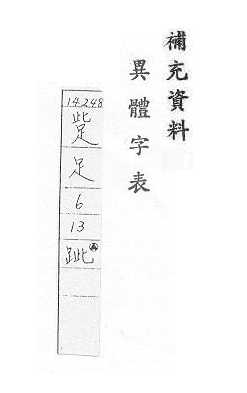 補充資料
異體字表
14248
足
6
13
跐